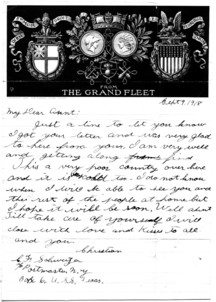 FROM
THE GRAND FLEET
Sept 9, 1918
My Dear Aunt:
Just a line to let you know
I got your letter and was very glad
to hear from you. I am very well
and getting along fine
This is a very poor country over here
and it is cold too. I do not know
when I will be able to see you and
the rest of the people at home but
I hope it will be soon. Well Aunt
Till take care of yourself I will
close with love and kisses to all
and you.
Christian
C. F. Schweizer
Postmaster N.Y.